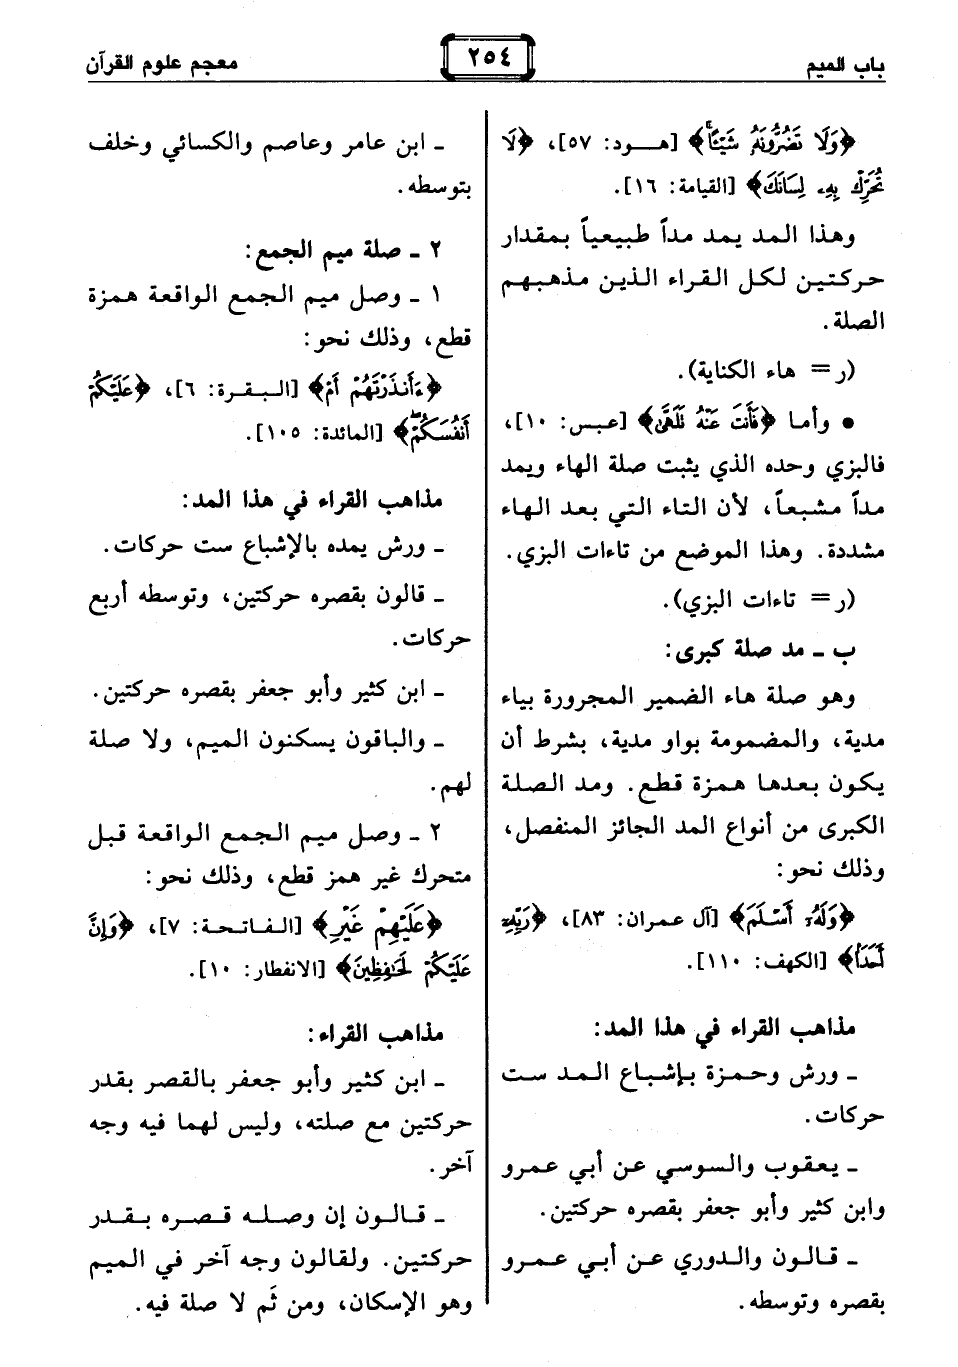 باب الميم
٢٥٤
معجم علوم القرآن
﴿وَلَا تَضُرُّونَهُ شَيْئًا﴾ [هـود: ٥٧]، ﴿لَا
تُحَرِّكْ بِهِۦ لِسَانَكَ﴾ [القيامة: ١٦].
وهذا المد يمد مداً طبيعياً بمقدار
حركتين لكل القراء الذين مذهبهم
الصلة.
(ر= هاء الكناية).
• وأما ﴿فَأَنتَ عَنْهُ تَلَهَّىٰ﴾ [عبس: ١٠]،
فالبزي وحده الذي يثبت صلة الهاء ويمد
مداً مشبعاً، لأن التاء التي بعد الهاء
مشددة. وهذا الموضع من تاءات البزي.
(ر= تاءات البزي).
ب ـ مد صلة كبرى:
وهو صلة هاء الضمير المجرورة بياء
مدية، والمضمومة بواو مدية، بشرط أن
يكون بعدها همزة قطع. ومد الصلة
الكبرى من أنواع المد الجائز المنفصل،
وذلك نحو:
﴿وَلَهُۥ أَسْلَمَ﴾ [آل عمران: ٨٣]، ﴿رَبِّهِۦ
أَحَدًا﴾ [الكهف: ١١٠].
مذاهب القراء في هذا المد:
ـ ورش وحمزة بإشباع المد ست
حركات.
ـ يعقوب والسوسي عن أبي عمرو
وابن كثير وأبو جعفر بقصره حركتين.
ـ قالون والدوري عن أبي عمرو
بقصره وتوسطه.
ـ ابن عامر وعاصم والكسائي وخلف
بتوسطه.
٢ ـ صلة ميم الجمع:
١ ـ وصل ميم الجمع الواقعة همزة
قطع، وذلك نحو:
﴿ءَأَنذَرْتَهُمْ أَمْ﴾ [البقرة: ٦]، ﴿عَلَيْكُمْ
أَنفُسَكُمْ﴾ [المائدة: ١٠٥].
مذاهب القراء في هذا المد:
ـ ورش يمده بالإشباع ست حركات.
ـ قالون بقصره حركتين، وتوسطه أربع
حركات.
ـ ابن كثير وأبو جعفر بقصره حركتين.
ـ والباقون يسكنون الميم، ولا صلة
لهم.
٢ ـ وصل ميم الجمع الواقعة قبل
متحرك غير همز قطع، وذلك نحو:
﴿عَلَيْهِمْ غَيْرِ﴾ [الفاتحة: ٧]، ﴿وَإِنَّ
عَلَيْكُمْ لَحَٰفِظِينَ﴾ [الانفطار: ١٠].
مذاهب القراء:
ـ ابن كثير وأبو جعفر بالقصر بقدر
حركتين مع صلته، وليس لهما فيه وجه
آخر.
ـ قالون إن وصله قصره بقدر
حركتين. ولقالون وجه آخر في الميم
وهو الإسكان، ومن ثَم لا صلة فيه.